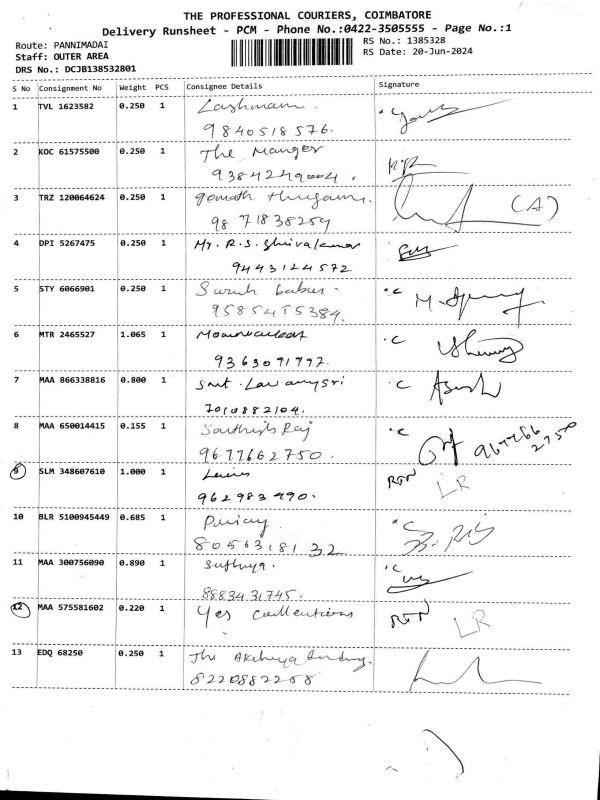 THE PROFESSIONAL COURIERS, COIMBATORE
Delivery Runsheet - PCM - Phone No.:0422-3505555 - Page No.:1
Route: PANNIMADAI
RS No.: 1385328
Staff: OUTER AREA
RS Date: 20-Jun-2024
DRS No.: DCJB138532801
S No Consignment No Weight PCS Consignee Details Signature
1 TVL 1623582 0.250 1 Lashmam
9840518576.
2 KOC 61575500 0.250 1 The Manger
9384249004.
3 TRZ 120064624 0.250 1
9871838259 (A)
4 DPI 5267475 0.250 1 Mr. R.S. Shivakumar
9443124572
5 STY 6066901 0.250 1 Suresh babu
9585455384.
6 MTR 2465527 1.065 1
9363091797.
7 MAA 866338816 0.800 1 Smt.
7010882104.
8 MAA 650014415 0.155 1 Sathish Raj
9677662750.
9 SLM 348607610 1.000 1 RTN LR
962983490.
10 BLR 5100945449 0.685 1
8056318132
11 MAA 300756090 0.890 1 Suthuya.
8883431745.
12 MAA 575581602 0.220 1 Yes collections RTN LR
13 EDQ 68250 0.250 1 The Akshaya
8220882258